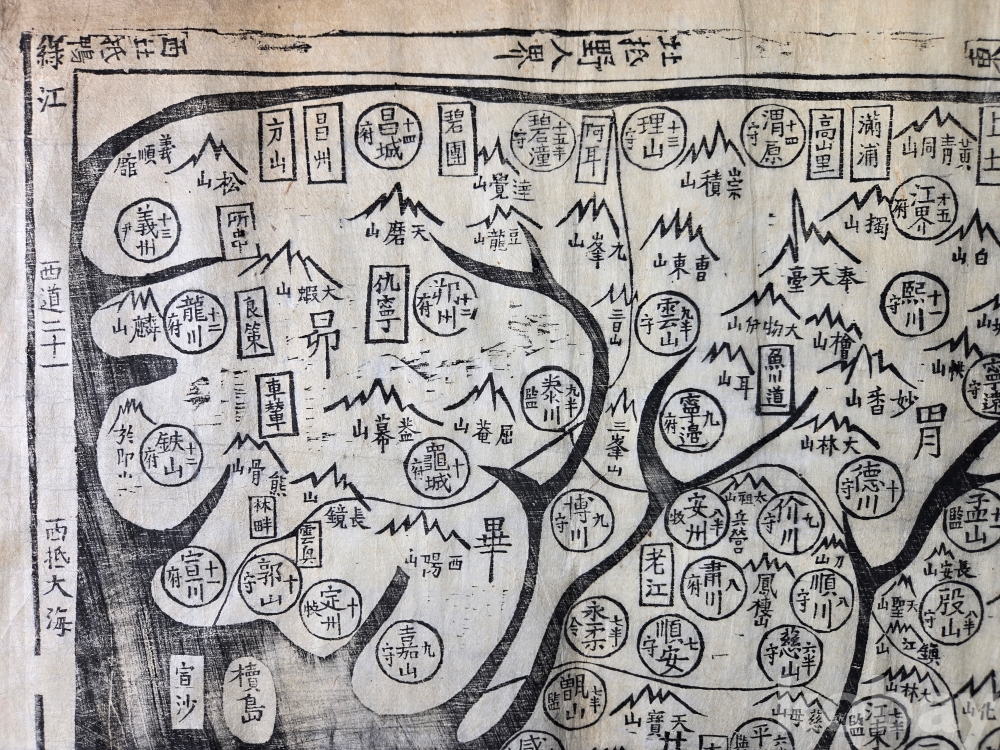 西 江
綠
野人界
昌城 府 十四
昌州
方山
碧團
碧潼 守 十五半
阿耳
理山 守 十三
渭原 守 十四
高山里
滿浦
黃青同山
義順館
松山
義州 尹 十三
所串
天磨山
豆龍山
九峯山
崇積山
江界 府 十五
獨山
白山
曹東山
奉天臺
大蝦山
麟山
龍川 府 十二
良策
昴
仇寧
朔州 府
三日山
雲山 守 九半
熙川 守 十一
西道二十一
車輦
泰川 監 九半
耳山
魚川道
檜山
妙香山
寧遠
胃
鉄山 府 十二
益幕山
屈菴山
龜城 府 十
三峯山
寧邊 府 九
大林山
德川 守 十
孟山 監
熊骨山
林畔
長鏡山
雲興
西陽山
畢
博川 守 九
安州 牧 八半
太祖山
兵營
价川 守 九
刀山
西抵大海
宣川 府 十一
郭山 守 十
定州 牧 十
嘉山 守 九
老江
肅川 府 八
鳳棲山
順川 守 八
長安山
天聖山
殷山 守 八半
永柔 令 七半
順安 守 七
慈山 守 六半
鎮江
宣沙
檟島
甑山 監 七半
天寶山
慈母山
七林山
江東 監
井